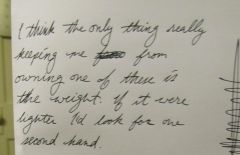 I think the only thing really
keeping me from
owning one of these is
the weight. If it were
lighter I'd look for one
second hand.